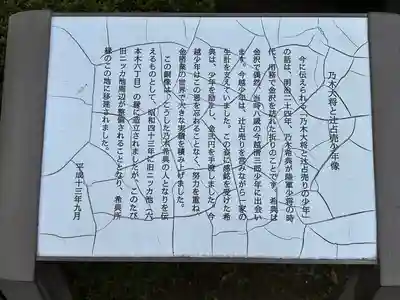 乃木大将と辻占売少年像
今に伝えられる「乃木大将と辻占売りの少年」
の話は、明治二十四年、乃木希典が陸軍少将の時
代、用務で金沢を訪れた折りのことです。希典は
金沢で偶然、当時八歳の今越清三郎少年に出会い
ます。今越少年は、辻占売りを営みながら一家の
生計を支えていました。この姿に感銘を受けた希
典は、少年を励まし、金弐円を手渡しました。今
越少年はこの恩を忘れることなく、努力を重ね、
金箔業の世界で大きな実績を積み上げました。
この銅像は、こうした乃木希典の人となりを伝
えるものとして、昭和四十三年に旧ニッカ池（六
本木六丁目）の縁に造立されましたが、このたび
旧ニッカ池周辺が整備されることとなり、希典所
縁のこの地に移建されました。
平成十三年九月